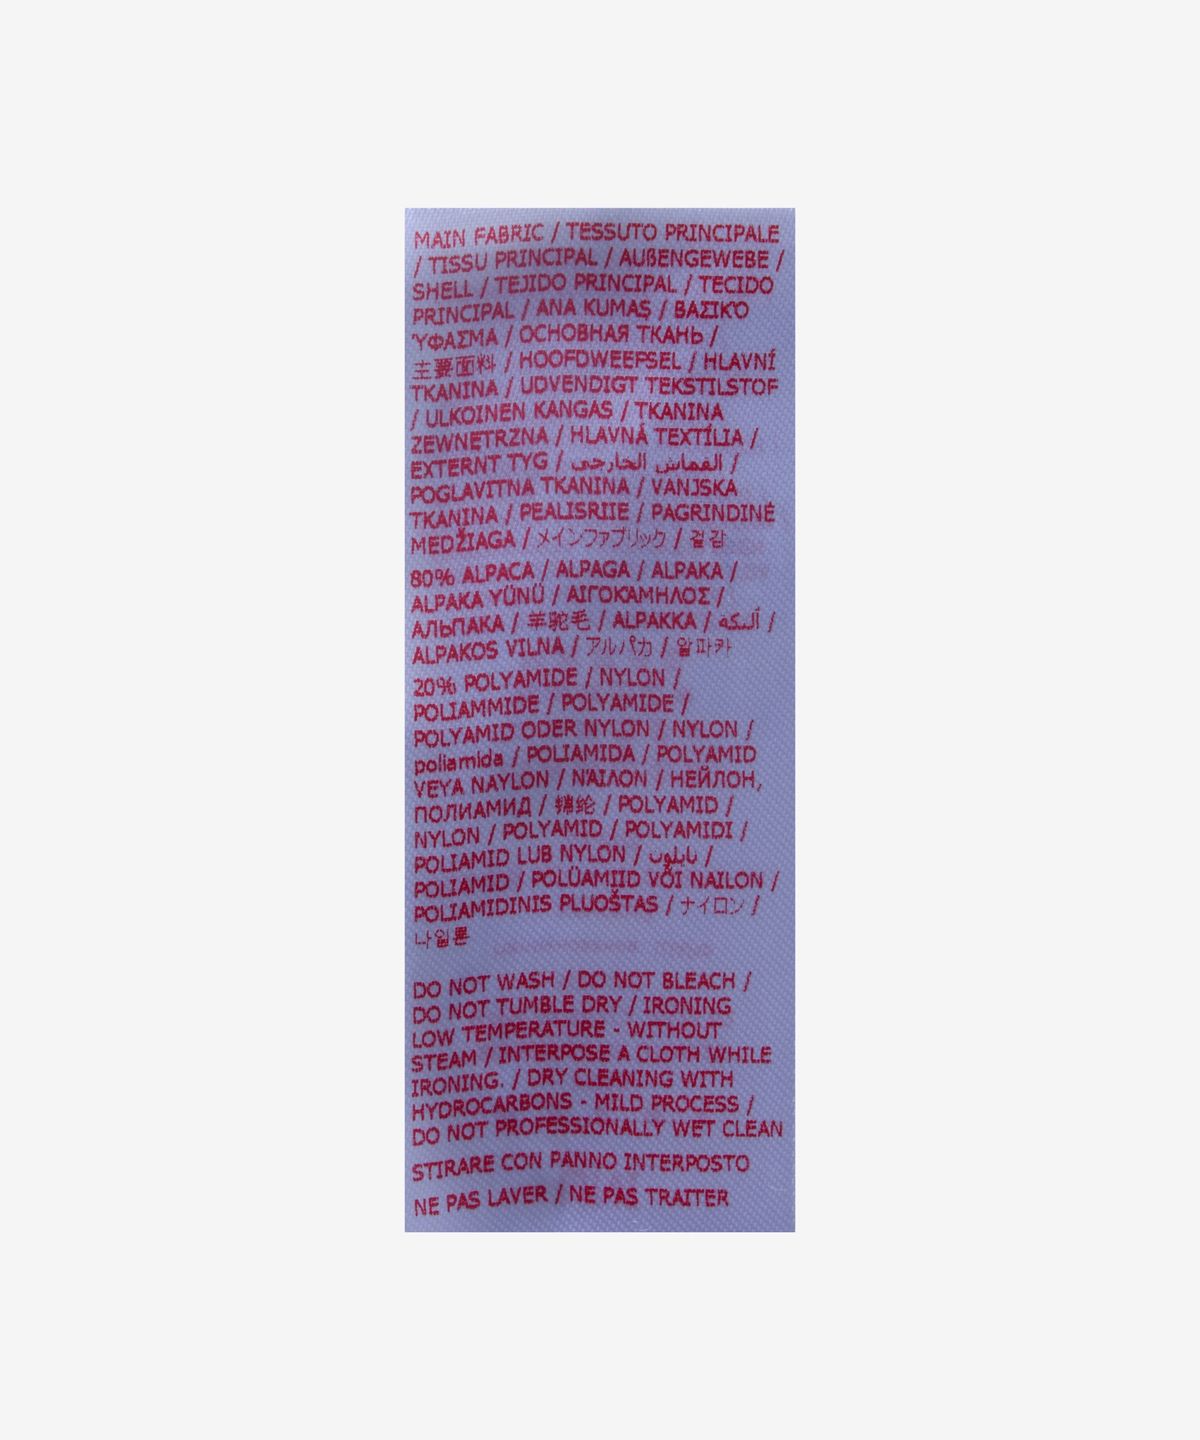 MAIN FABRIC / TESSUTO PRINCIPALE
/ TISSU PRINCIPAL / AUßENGEWEBE /
SHELL / TEJIDO PRINCIPAL / TECIDO
PRINCIPAL / ANA KUMAŞ / ΒΑΣΙΚΌ
ΎΦΑΣΜΑ / ОСНОВНАЯ ТКАНЬ /
主要面料 / HOOFDWEEFSEL / HLAVNÍ
TKANINA / UDVENDIGT TEKSTILSTOF
/ ULKOINEN KANGAS / TKANINA
ZEWNĘTRZNA / HLAVNÁ TEXTÍLIA /
EXTERNT TYG / القماش الخارجي /
POGLAVITNA TKANINA / VANJSKA
TKANINA / PEALISRIIE / PAGRINDINĖ
MEDŽIAGA / メインファブリック / 겉감
80% ALPACA / ALPAGA / ALPAKA /
ALPAKA YÜNÜ / ΑΙΓΟΚΑΜΗΛΟΣ /
АЛЬПАКА / 羊驼毛 / ALPAKKA / ألبكة /
ALPAKOS VILNA / アルパカ / 알파카
20% POLYAMIDE / NYLON /
POLIAMMIDE / POLYAMIDE /
POLYAMID ODER NYLON / NYLON /
poliamida / POLIAMIDA / POLYAMID
VEYA NAYLON / ΝΆΙΛΟΝ / НЕЙЛОН,
ПОЛИАМИД / 锦纶 / POLYAMID /
NYLON / POLYAMID / POLYAMIDI /
POLIAMID LUB NYLON / نايلون /
POLIAMID / POLÜAMIID VÕI NAILON /
POLIAMIDINIS PLUOŠTAS / ナイロン /
나일론
DO NOT WASH / DO NOT BLEACH /
DO NOT TUMBLE DRY / IRONING
LOW TEMPERATURE - WITHOUT
STEAM / INTERPOSE A CLOTH WHILE
IRONING. / DRY CLEANING WITH
HYDROCARBONS - MILD PROCESS /
DO NOT PROFESSIONALLY WET CLEAN
STIRARE CON PANNO INTERPOSTO
NE PAS LAVER / NE PAS TRAITER